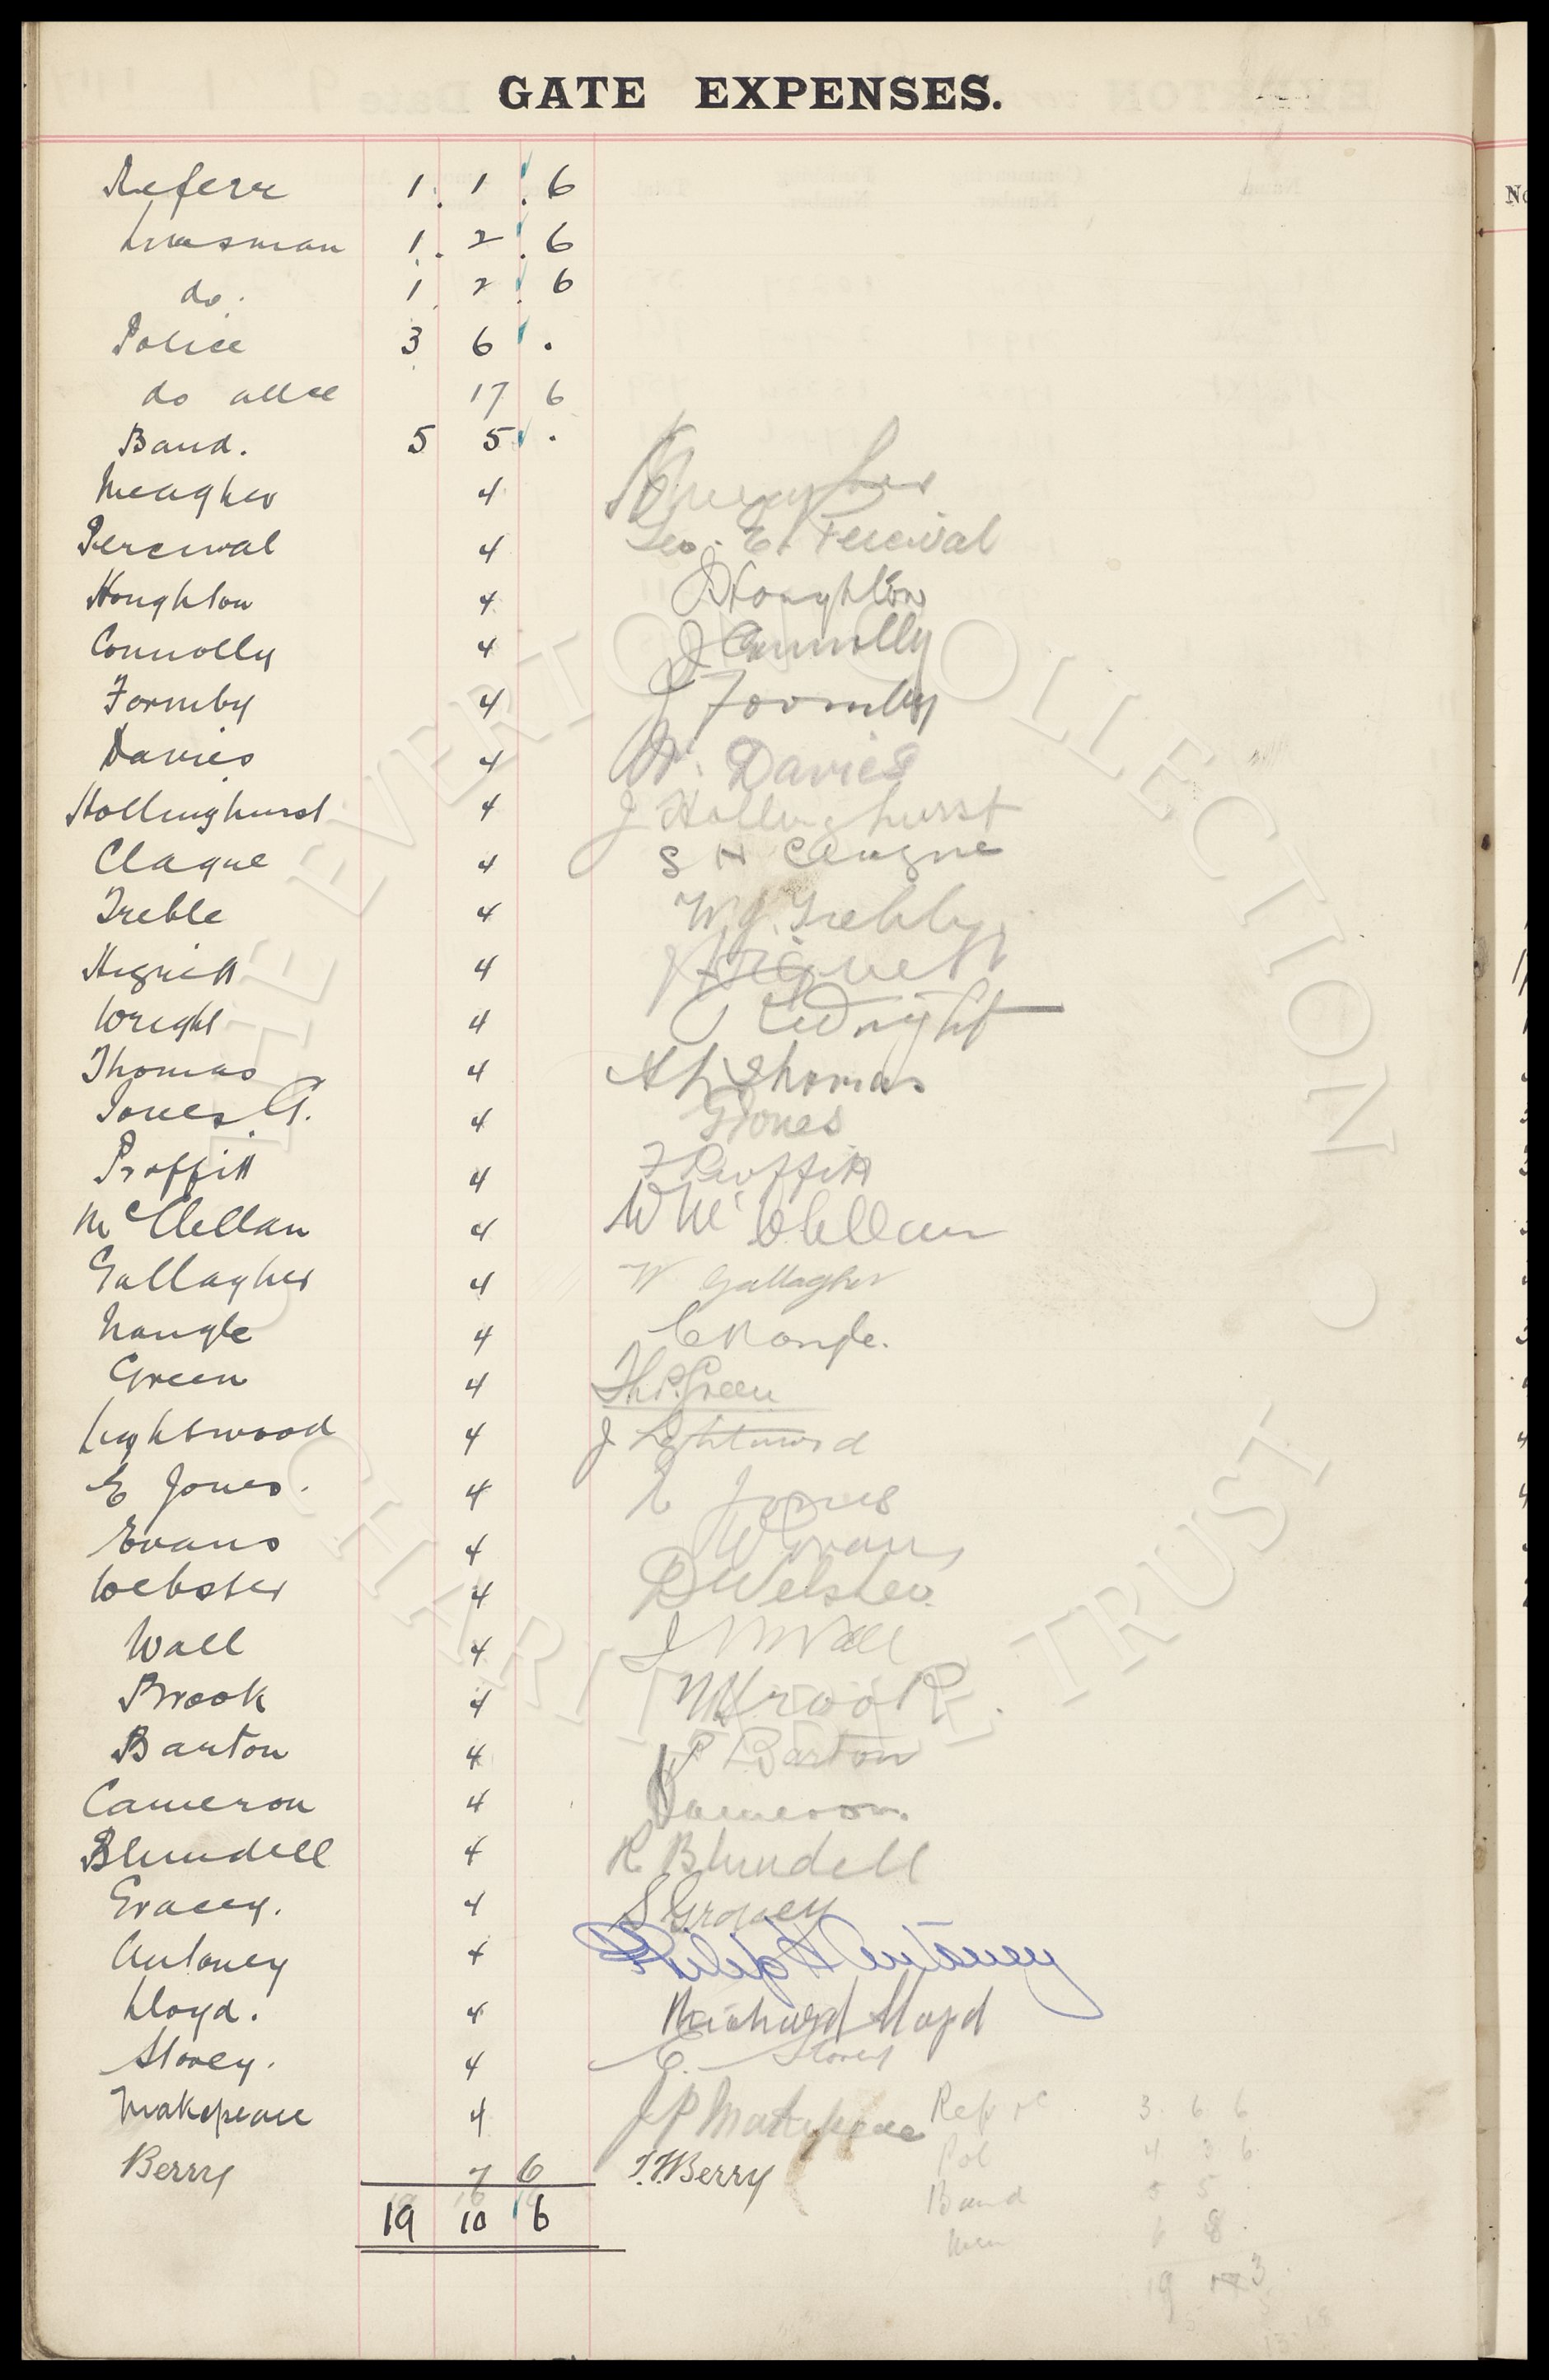 GATE EXPENSES.
Referee 1. 1. 6
Linesman 1. 2. 6
do. 1. 2. 6
Police 3 6 .
do allce 17 6
Band. 5 5 .
Meagher 4 Meagher
Percival 4 Geo. E. Percival
Houghton 4 J Houghton
Connolly 4 J Connolly
Formby 4 J Formby
Davies 4 W. Davies
Hollinghurst 4 J Hollinghurst
Clague 4 S H Clague
Treble 4 W J
Hignett 4 J Hignett
Wright 4 Wright
Thomas 4 A Thomas
Jones G. 4 G Jones
Proffitt 4 F Proffitt
McClellan 4 W McClellan
Gallagher 4 W Gallagher
Nangle 4 C Nangle.
Green 4 Green
Lightwood 4 J Lightwood
E Jones. 4 E Jones
Evans 4 W Evans
Webster 4 D Webster
Wall 4 J Wall
Brook 4 Brook
Barton 4 P Barton
Cameron 4 Cameron.
Blundell 4 R Blundell
Gracey. 4 S Gracey
Antoney 4 Philip H Antoney
Lloyd. 4 Richard Lloyd
Storey. 4 E. Storey
Makepeace 4 J P Makepeace
Ref 3 6 6
Berry 7 6 T. W. Berry
Pol 4 3 6
19 10 6
Band 5 5 .
Men 6 8 .
19
No
THE EVERTON COLLECTION CHARITABLE TRUST